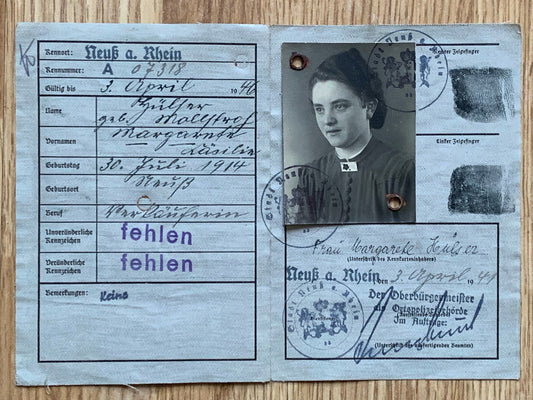 Kennort: Neuß a. Rhein
Kennummer: A 07318
Gültig bis 3. April 1946
Name Hülser
geb.
Vornamen Margarete
Geburtstag 30. Juli 1914
Geburtsort Neuß
Beruf Verkäuferin
Unveränderliche Kennzeichen fehlen
Veränderliche Kennzeichen fehlen
Bemerkungen: Keine
Rechter Zeigefinger
Linker Zeigefinger
Stadt Neuß a. Rhein
Stadt Neuß a. Rhein
Frau Margarete Hülser
(Unterschrift des Kennkarteninhabers)
Neuß a. Rhein, den 3. April 1941
Der Oberbürgermeister
als Ortspolizeibehörde
Im Auftrage:
(Unterschrift des ausfertigenden Beamten)
Stadt Neuß a. Rhein